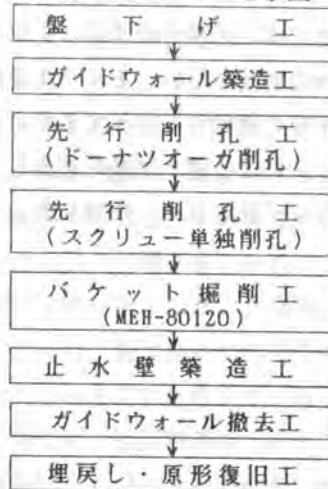 盤下げ工
ガイドウォール築造工
先行削孔工
(ドーナツオーガ削孔)
先行削孔工
(スクリュー単独削孔)
バケット掘削工
(MEH-80120)
止水壁築造工
ガイドウォール撤去工
埋戻し・原形復旧工